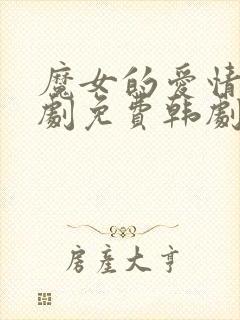 魔女的爱情
剧免费韩剧
房产大亨